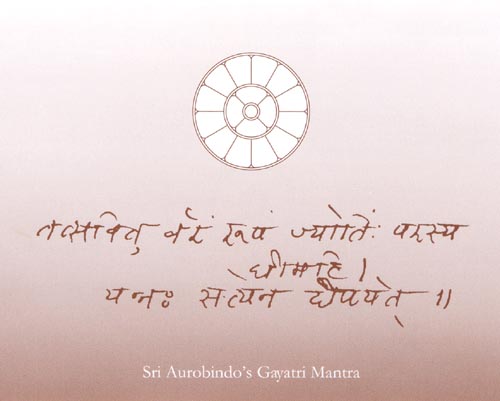 तत्सवितु र्वरं रूपं ज्योतिः परस्य
धीमहि ।
यन्नः सत्येन दीपयेत् ॥
Sri Aurobindo's Gayatri Mantra